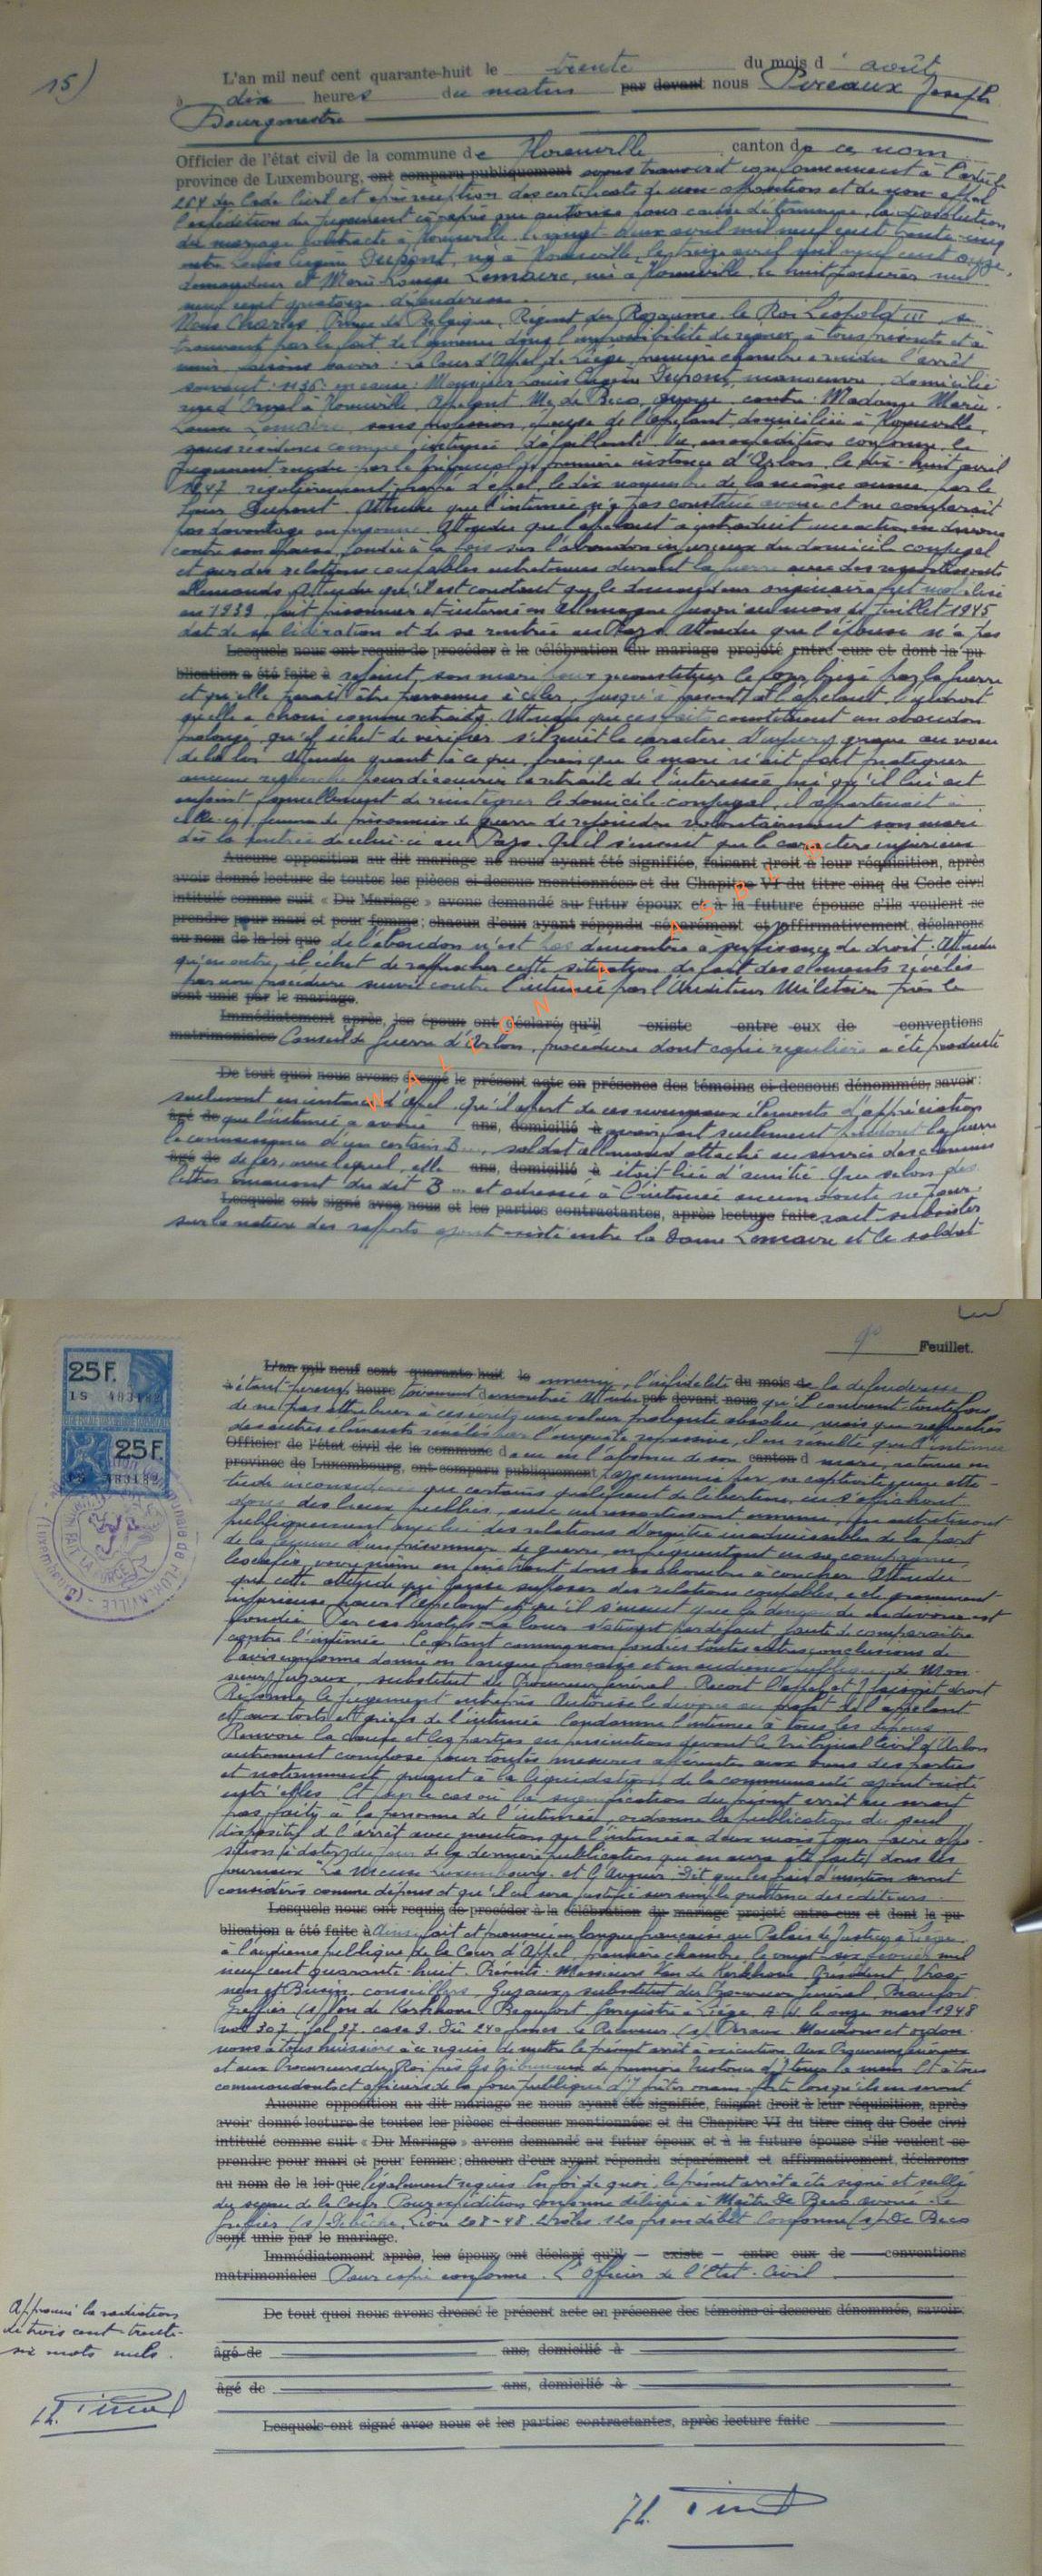 15)
L'an mil neuf cent quarante-huit le trente du mois d'août
à dix heures du matin par devant nous Pireaux Joseph
Bourgmestre
Officier de l'état civil de la commune de Florenville, canton de ce nom
province de Luxembourg, ont comparu publiquement avons transcrit conformément à l'article
264 du Code Civil et après réception des certificats de non-opposition et de non appel
l'expédition du jugement ci-après qui autorise pour cause déterminée, la dissolution
du mariage contracté à Florenville le vingt-deux avril mil neuf cent trente-cinq
entre Louis Eugène Dupont, né à Florenville, le treize avril mil neuf cent onze,
demandeur et Marie Louise Lemaire, née à Florenville le huit février mil
neuf cent quatorze défenderesse.
Nous Charles, Prince de Belgique, Régent du Royaume, le Roi Léopold III, se
trouvant par le fait de l'ennemi dans l'impossibilité de régner, à tous présents et à
venir faisons savoir : La Cour d'Appel de Liège, première chambre a rendu l'arrêt
suivant : en cause : Monsieur Louis Eugène Dupont, manoeuvre, domicilié
rue d'Orval à Florenville, Appelant Me de Beco, avoué, contre : Madame Marie-
Louise Lemaire, sans profession, épouse de l'appelant domiciliée à Florenville,
sans résidence connue, intimée, défaillante. Vu en expédition conforme le
jugement rendu par le tribunal de première instance d'Arlon, le dix-huit avril
1947 régulièrement frappé d'appel le dix novembre de la même année, par le
sieur Dupont. Attendu que l'intimée n'a pas constitué avoué et ne comparait
pas davantage en personne. Attendu que l'appelant a introduit une action en divorce
contre son épouse, fondée à la fois sur l'abandon injurieux du domicile conjugal
et sur des relations coupables entretenues durant la guerre avec des ressortissants
allemands. Attendu qu'il est constant que le demandeur originaire fut mobilisé
en 1939, fait prisonnier et interné en Allemagne jusqu'au mois de Juillet 1945
date de sa libération et de sa rentrée au Pays. Attendu que l'épouse n'a pas
Lesquels nous ont requis de procéder à la célébration du mariage projeté entre eux et dont la pu-
blication a été faite à rejoint, son mari pour reconstituer le foyer brisé par la guerre
et qu'elle parait être parvenue à celer, jusqu'à présent à l'appelant, l'endroit
qu'elle a choisi comme retraite. Attendu que ces faits constituent un abandon
prolongé qu'il échet de vérifier s'il revêt le caractère d'injure grave au voeu
de la loi. Attendu quant à ce que, bien que le mari n'ait fait pratiquer
aucune recherche pour découvrir la retraite de l'intéressée, ni qu'il lui ait
enjoint formellement de réintégrer le domicile conjugal, il appartenait à
celle-ci, femme de prisonnier de guerre de rejoindre volontairement son mari
dès la rentrée de celui-ci au Pays. Qu'il s'ensuit que le caractère injurieux
Aucune opposition au dit mariage ne nous ayant été signifiée, faisant droit à leur réquisition, après
avoir donné lecture de toutes les pièces ci-dessus mentionnées et du Chapitre VI du titre cinq du Code civil
intitulé comme suit « Du Mariage » avons demandé au futur époux et à la future épouse s'ils veulent se
prendre pour mari et pour femme; chacun d'eux ayant répondu séparément et affirmativement, déclarons
au nom de la loi que de l'abandon n'est pas démontré à suffisance de droit. Attendu
qu'en outre, il échet de rapprocher cette situation de fait des éléments révélés
par une procédure suivie contre l'intimée par l'Auditeur Militaire près le
sont unis par le mariage.
Immédiatement après, les époux ont déclaré qu'il existe entre eux de conventions
matrimoniales Conseil de Guerre d'Arlon, procédure dont copie régulière a été produite
De tout quoi nous avons dressé le présent acte en présence des témoins ci-dessous dénommés, savoir:
seulement en instance d'Appel. Qu'il appert de ces nouveaux éléments d'appréciation
âgé de que l'intimée a avoué ans, domicilié à avoir fait seulement pendant la guerre
la connaissance d'un certain B..., soldat allemand attaché au service des chemins
âgé de de fer, avec lequel, elle ans, domicilié à était liée d'amitié. Que selon des
lettres émanant du dit B... et adressée à l'intimée aucun doute ne pour-
Lesquels ont signé avec nous et les parties contractantes, après lecture faite rait subsister
sur la nature des rapports ayant existé entre la Dame Lemaire et le soldat
WALLONIA ASBL
9e Feuillet.
25F.
1S 483182
25F.
1S 483182
L'an mil neuf cent quarante-huit le ennemi, l'infidélité du mois de la défenderesse
à étant heure démontrée Attendu par devant nous qu'il convient toutefois
de ne pas attribuer à ces écrits une valeur probante absolue, mais que rapprochés
des autres éléments révélés par l'enquête répressive, il en résulte que l'intimée
Officier de l'état civil de la commune d a eu en l'absence de son canton d mari, retenu en
province de Luxembourg, ont comparu publiquement par sa captivité une atti-
tude inconsidérée que certains qualifient de libertine, en s'affichant
dans des lieux publics, avec un ressortissant ennemi, en entretenant
publiquement avec lui des relations d'amitié inadmissibles de la part
de la femme d'un prisonnier de guerre, en fréquentant en sa compagnie,
les cafés, voire même en pénétrant dans sa chambre à coucher Attendu
que cette attitude qui laisse supposer des relations coupables, a été gravement
injurieuse pour l'appelant et qu'il s'ensuit que la demande en divorce est
fondée. Par ces motifs - La Cour, statuant par défaut, faute de comparaitre
contre l'intimée. Ecartant comme non fondées toutes autres conclusions de
l'avis conforme donné en langue française et en audience publique de Mon-
sieur Guzaux, substitut du Procureur Général. Reçoit l'appel et y faisant droit
Réforme le jugement entrepris Autorise le divorce au profit de l'appelant
et aux torts et griefs de l'intimée. Condamne l'intimée à tous les dépens
Renvoie la cause et les parties en prosécution devant le Tribunal Civil d'Arlon
autrement composé pour toutes mesures afférentes aux biens des parties
et notamment, quant à la liquidation, de la communauté ayant existé
entr'elles. Et pour le cas où la signification du présent arrêt ne serait
pas faite à la personne de l'intimée, ordonne la publication du seul
dispositif de l'arrêt avec mention que l'intimée a deux mois pour faire oppo-
sition à dater du jour de la dernière publication qui en aura été faite, dans les
journaux "La Meuse Luxembourg" et l'Avenir. Dit que les frais d'insertion seront
considérés comme dépens et qu'il en sera justifié sur simple quittance des éditeurs.
Lesquels nous ont requis de procéder à la célébration du mariage projeté entre eux et dont la pu-
blication a été faite à Ainsi fait et prononcé en langue française au Palais de Justice à Liège
à l'audience publique de la Cour d'Appel, première chambre, le vingt-six février mil
neuf cent quarante-huit. Présents : Messieurs Van de Kerkhove, Président,
et Busin, conseillers, Guzaux, substitut du Procureur Général, Beaufort
Greffier (s) Van de Kerkhove. Beaufort. Enregistré à Liège A. J. le onze mars 1948
vol 307, fol 97, case 9. Dû 240 francs. Le Receveur (s) Mandons et ordon-
nons à tous huissiers à ce requis de mettre le présent arrêt à exécution. Aux Procureurs Généraux
et aux Procureurs du Roi près les Tribunaux de première Instance d'y tenir la main. Et à tous
commandants et officiers de la force publique d'y prêter main-forte lorsqu'ils en seront
Aucune opposition au dit mariage ne nous ayant été signifiée, faisant droit à leur réquisition, après
avoir donné lecture de toutes les pièces ci-dessus mentionnées et du Chapitre VI du titre cinq du Code civil
intitulé comme suit « Du Mariage » avons demandé au futur époux et à la future épouse s'ils veulent se
prendre pour mari et pour femme; chacun d'eux ayant répondu séparément et affirmativement, déclarons
au nom de la loi que légalement requis. En foi de quoi, le présent arrêt a été signé et scellé
du sceau de la Cour. Pour expédition conforme délivrée à Maître De Beco avoué. Le
Greffier (s) 20-8-48. 2 rôles. 120 frs en débet. Conforme (s) De Beco
sont unis par le mariage.
Immédiatement après, les époux ont déclaré qu'il existe entre eux de conventions
matrimoniales Pour copie conforme. L'Officier de l'Etat-Civil
De tout quoi nous avons dressé le présent acte en présence des témoins ci-dessous dénommés, savoir:
âgé de ans, domicilié à
âgé de ans, domicilié à
Lesquels ont signé avec nous et les parties contractantes, après lecture faite
Approuvé la radiation
de trois cent trente-
six mots nuls.